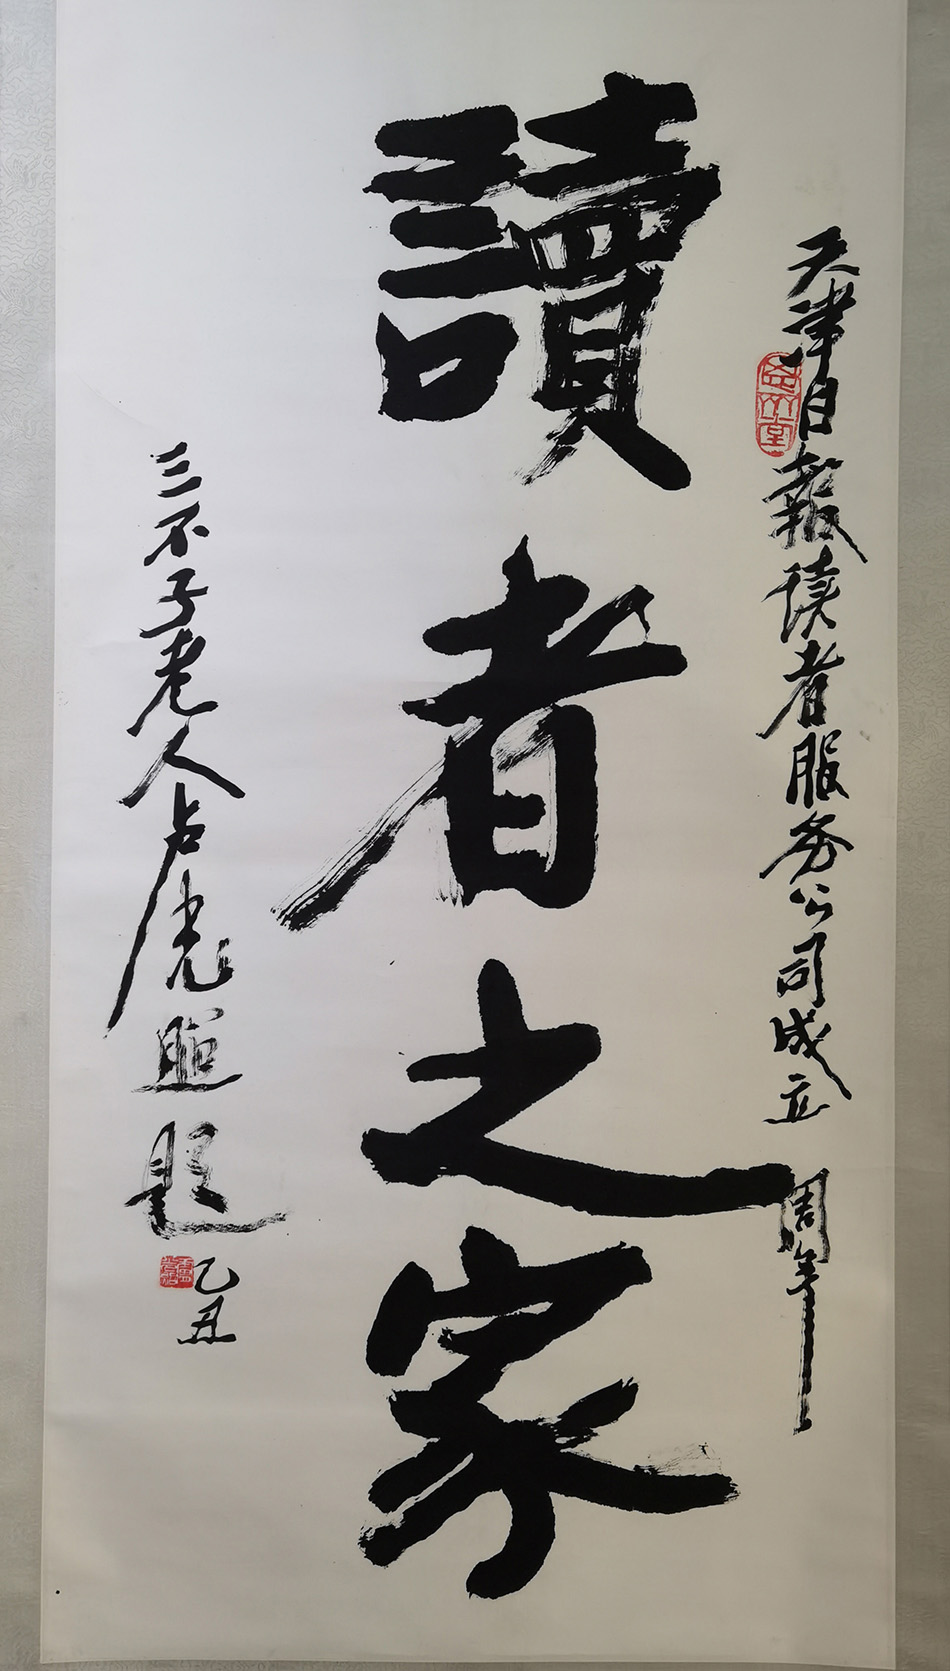 天津日報读者服务公司成立周年
讀者之家
三不子老人
題
乙丑